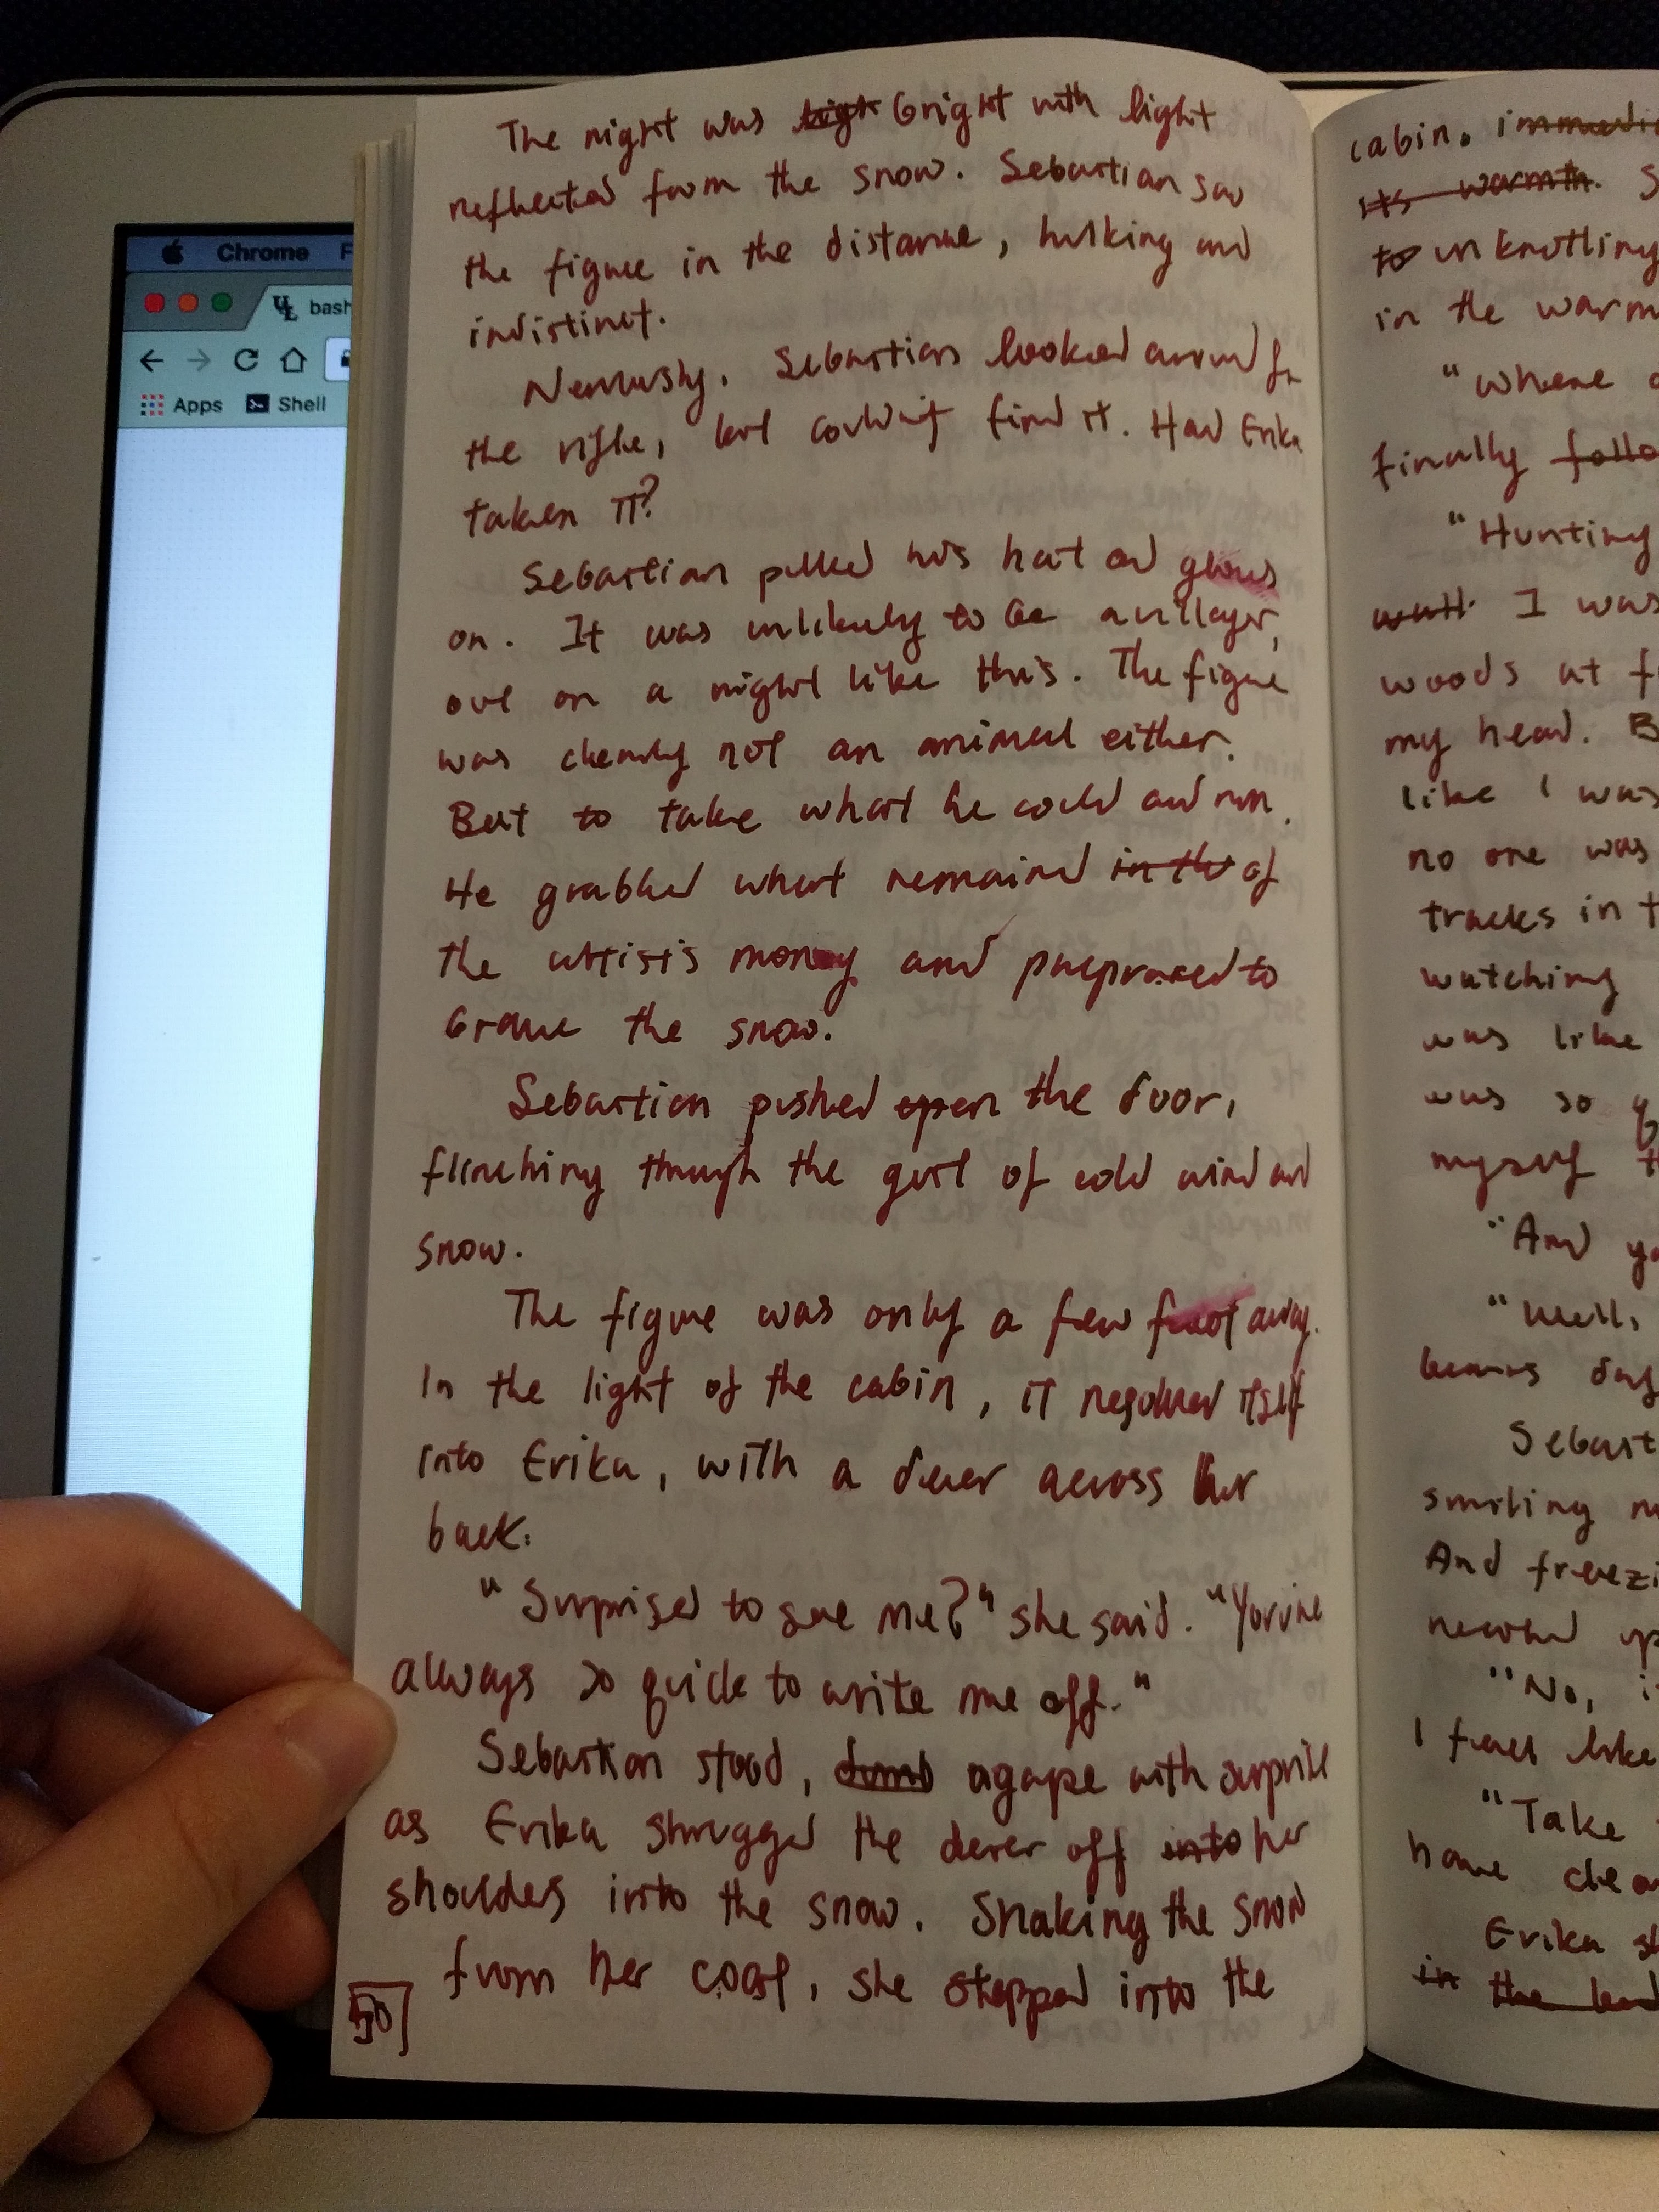 Chrome F
bash
Apps Shell
The night was bright with light
reflected from the snow. Sebastian saw
the figure in the distance, hulking and
indistinct.
Nervously, Sebastian looked around for
the rifle, but couldn't find it. Had Erika
taken it?
Sebastian pulled his hat and gloves
on. It was unlikely to be a villager,
out on a night like this. The figure
was clearly not an animal either.
But to take what he could and run.
He grabbed what remained in the of
the artist's money and prepared to
brave the snow.
Sebastian pushed open the door,
flinching through the gust of cold wind and
snow.
The figure was only a few feet away.
In the light of the cabin, it resolved itself
into Erika, with a deer across her
back.
"Surprised to see me?" she said. "You're
always so quick to write me off."
Sebastian stood, dumb agape with surprise
as Erika shrugged the deer off into her
shoulders into the snow. Shaking the snow
from her coat, she stepped into the
50
cabin.
its warmth. S
to unknotting
in the warm
"Where
finally follo
"Hunting
wall. I was
woods at f
my head. B
like I was
no one was
tracks in t
watching
was like
was so
myself t
"And yo
"Well,
Sebast
smiling
And freezi
"No, i
I feel like
"Take
have clea
Erika s
in the